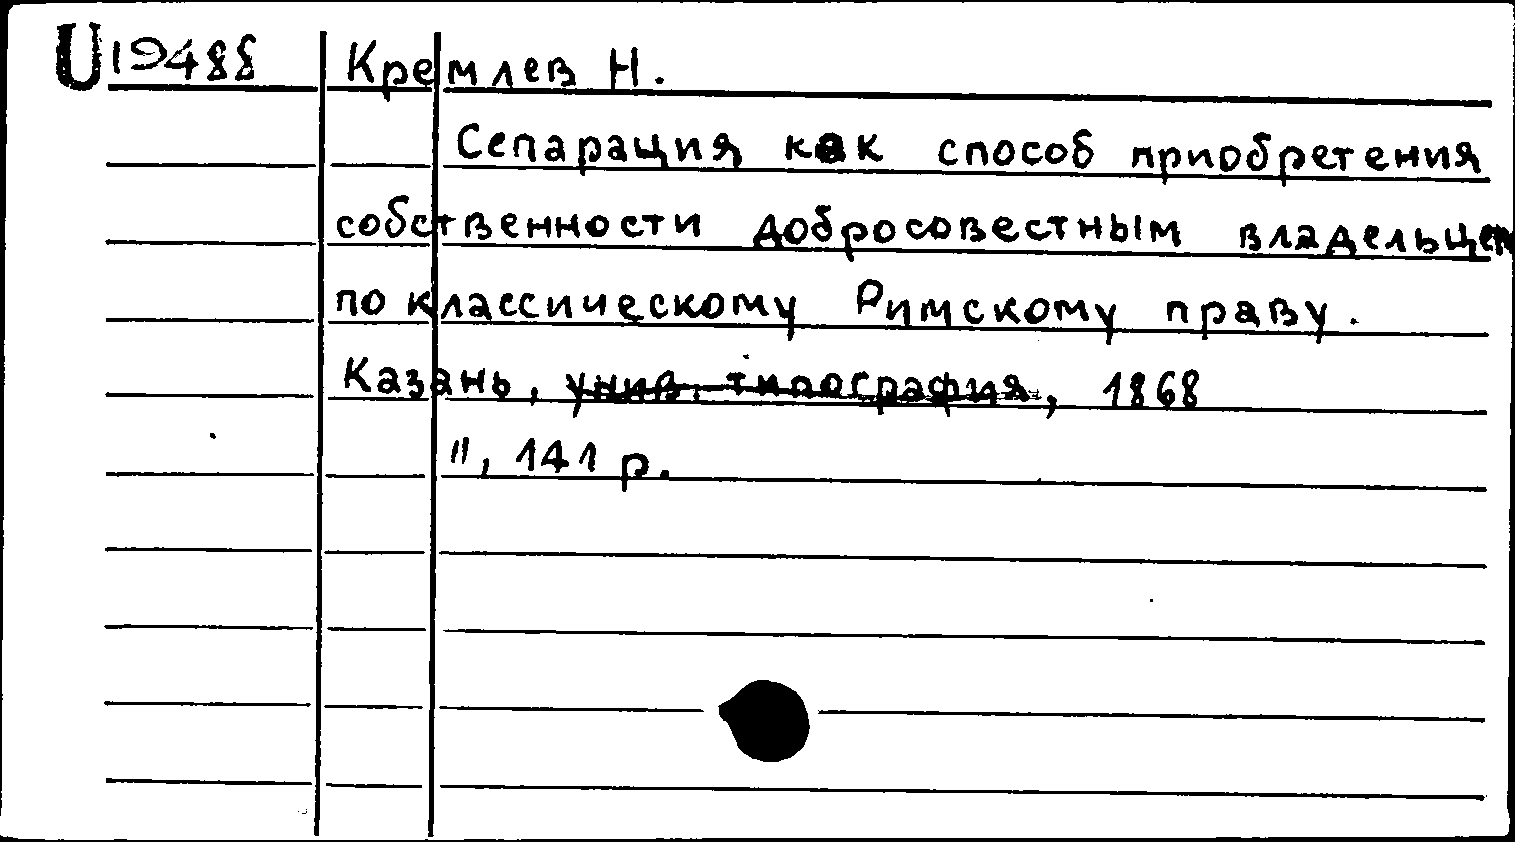 U19488 Кремлев Н.
Сепарация как способ приобретения
собственности добросовестным владельцем
по классическому Римскому праву.
Казань, унив. типография, 1868
", 141 р.